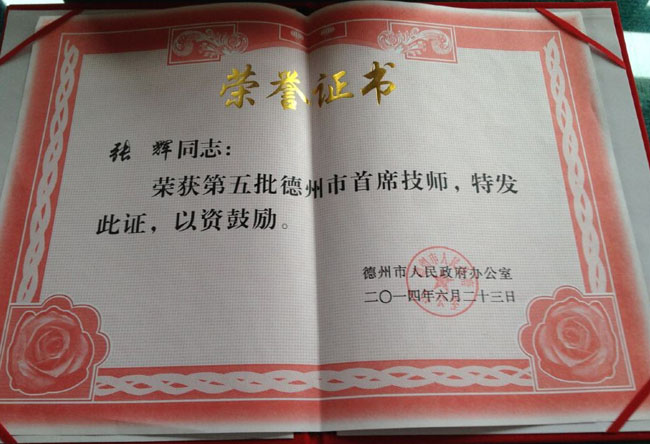 荣誉证书
张辉同志：
荣获第五批德州市首席技师，特发
此证，以资鼓励。
德州市人民政府办公室
二〇一四年六月二十三日